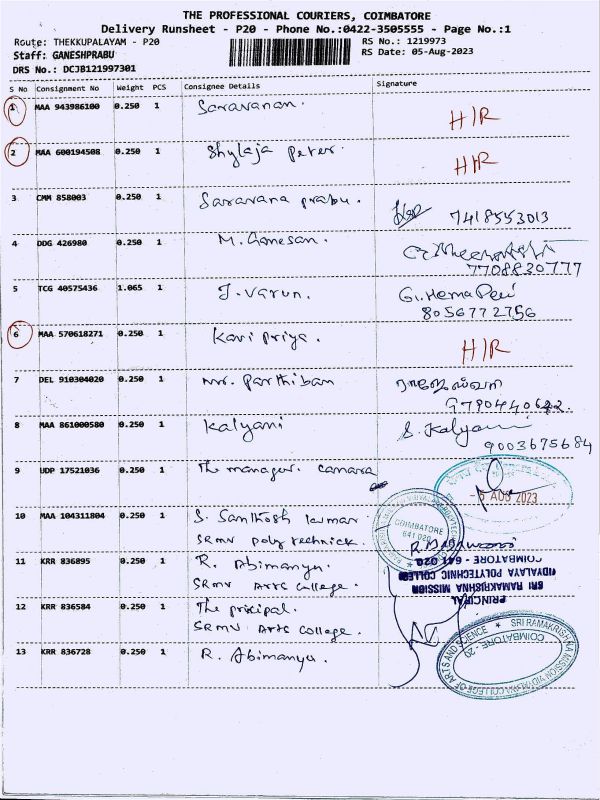 THE PROFESSIONAL COURIERS, COIMBATORE
Delivery Runsheet - P20 - Phone No.:0422-3505555 - Page No.:1
Route: THEKKUPALAYAM - P20
RS No.: 1219973
Staff: GANESHPRABU
RS Date: 05-Aug-2023
DRS No.: DCJB121997301
S No Consignment No Weight PCS Consignee Details Signature
1 MAA 943986100 0.250 1 Saravanan. H/R
2 MAA 600194508 0.250 1 Shylaja Peter. H/R
3 CMM 858003 0.250 1 Saravana prabu. 7418553013
4 DDG 426980 0.250 1 M. Ganesan.
7708830777
5 TCG 40575436 1.065 1 J. Varun. G. Hema Devi
8056772756
6 MAA 570618271 0.250 1 Kavi priya. H/R
7 DEL 910304020 0.250 1 Mr. Parthiban
8 MAA 861000580 0.250 1 Kalyani S. Kalyani
9003675684
9 UDP 17521036 0.250 1 The manager. Canara
-5 AUG 2023
10 MAA 104311804 0.250 1 S. Santhosh kumar
SRMV Poly technick.
COIMBATORE
641 020
11 KRR 836895 0.250 1 R. Abimanyu.
SRMV Arts College.
PRINCIPAL
SRI RAMAKRISHNA MISSION
VIDYALAYA POLYTECHNIC COLLEGE
COIMBATORE - 641 020
12 KRR 836584 0.250 1 The pricipal.
SRMV Arts College.
13 KRR 836728 0.250 1 R. Abimanyu.
SRI RAMAKRISHNA MISSION VIDYALAYA COLLEGE OF ARTS AND SCIENCE
COIMBATORE - 20